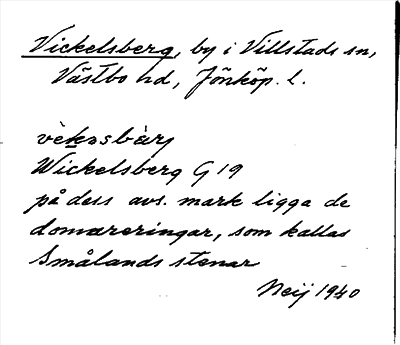 Vickelsberg, by i Villstads sn,
Västbo hd, Jönköp. l.
vèkəsbàrj
Wickelsberg G 19
på dess avs. mark ligga de
domareringar, som kallas
Smålands stenar
Neij 1940